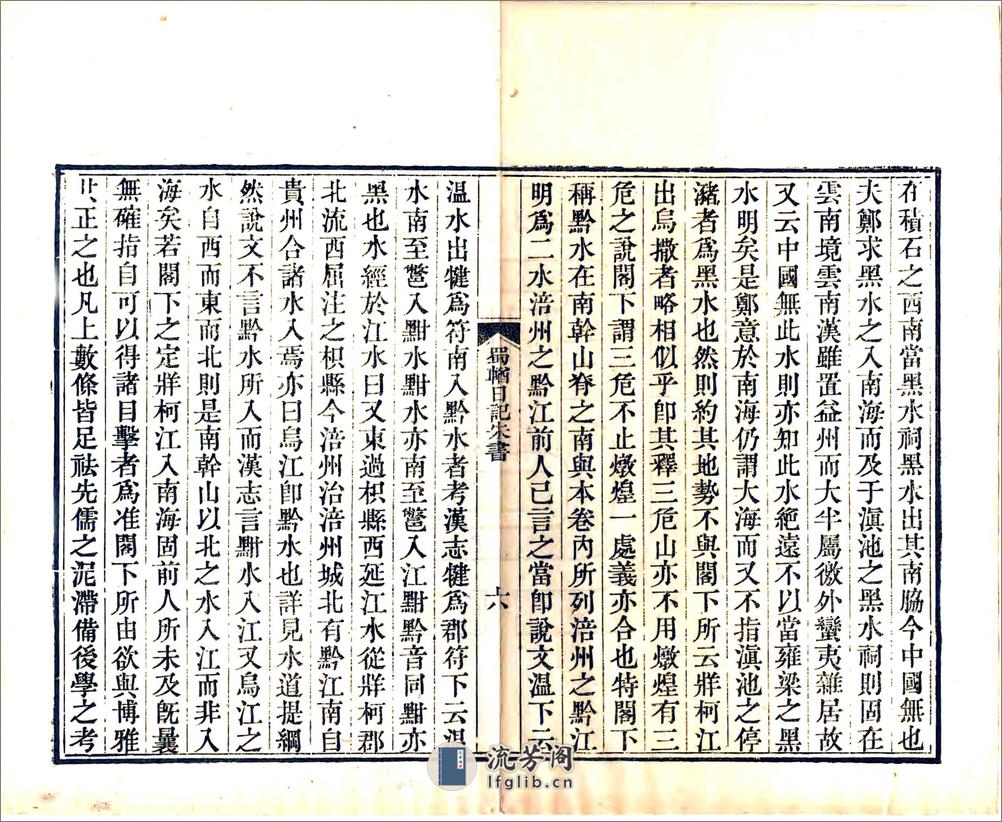 在積石之西南當黑水祠黑水出其南脇今中國無也
夫鄭求黑水之入南海而及于滇池之黑水祠則固在
雲南境雲南漢雖置益州而大半屬徼外蠻夷雜居故
又云中國無此水則亦知此水絶遠不以當雍梁之黑
水明矣是鄭意於南海仍謂大海而又不指滇池之停
瀦者爲黑水也然則約其地勢不與閣下所云牂柯江
出烏撒者略相似乎卽其釋三危山亦不用燉煌有三
危之說閣下謂三危不止燉煌一處義亦合也特閣下
稱黔水在南幹山脊之南與本卷內所列涪州之黔江
明爲二水涪州之黔江前人已言之當卽說文溫下云
蜀輶日記朱書
六
溫水出犍爲符南入黔水者考漢志犍爲郡符下云溫
水南至鄨入黚水黚水亦南至鄨入江黚黔音同黚亦
黑也水經於江水曰又東過枳縣西延江水從牂柯郡
北流西屈注之枳縣今涪州治涪州城北有黔江南自
貴州合諸水入焉亦曰烏江卽黔水也詳見水道提綱
然說文不言黔水所入而漢志言黚水入江又烏江之
水自西而東而北則是南幹山以北之水入江而非入
海矣若閣下之定牂柯江入南海固前人所未及旣曩
無確指自可以得諸目擊者爲准閣下所由欲與博雅
共正之也凡上數條皆足祛先儒之泥滯備後學之考
流芳阁
lfglib.cn